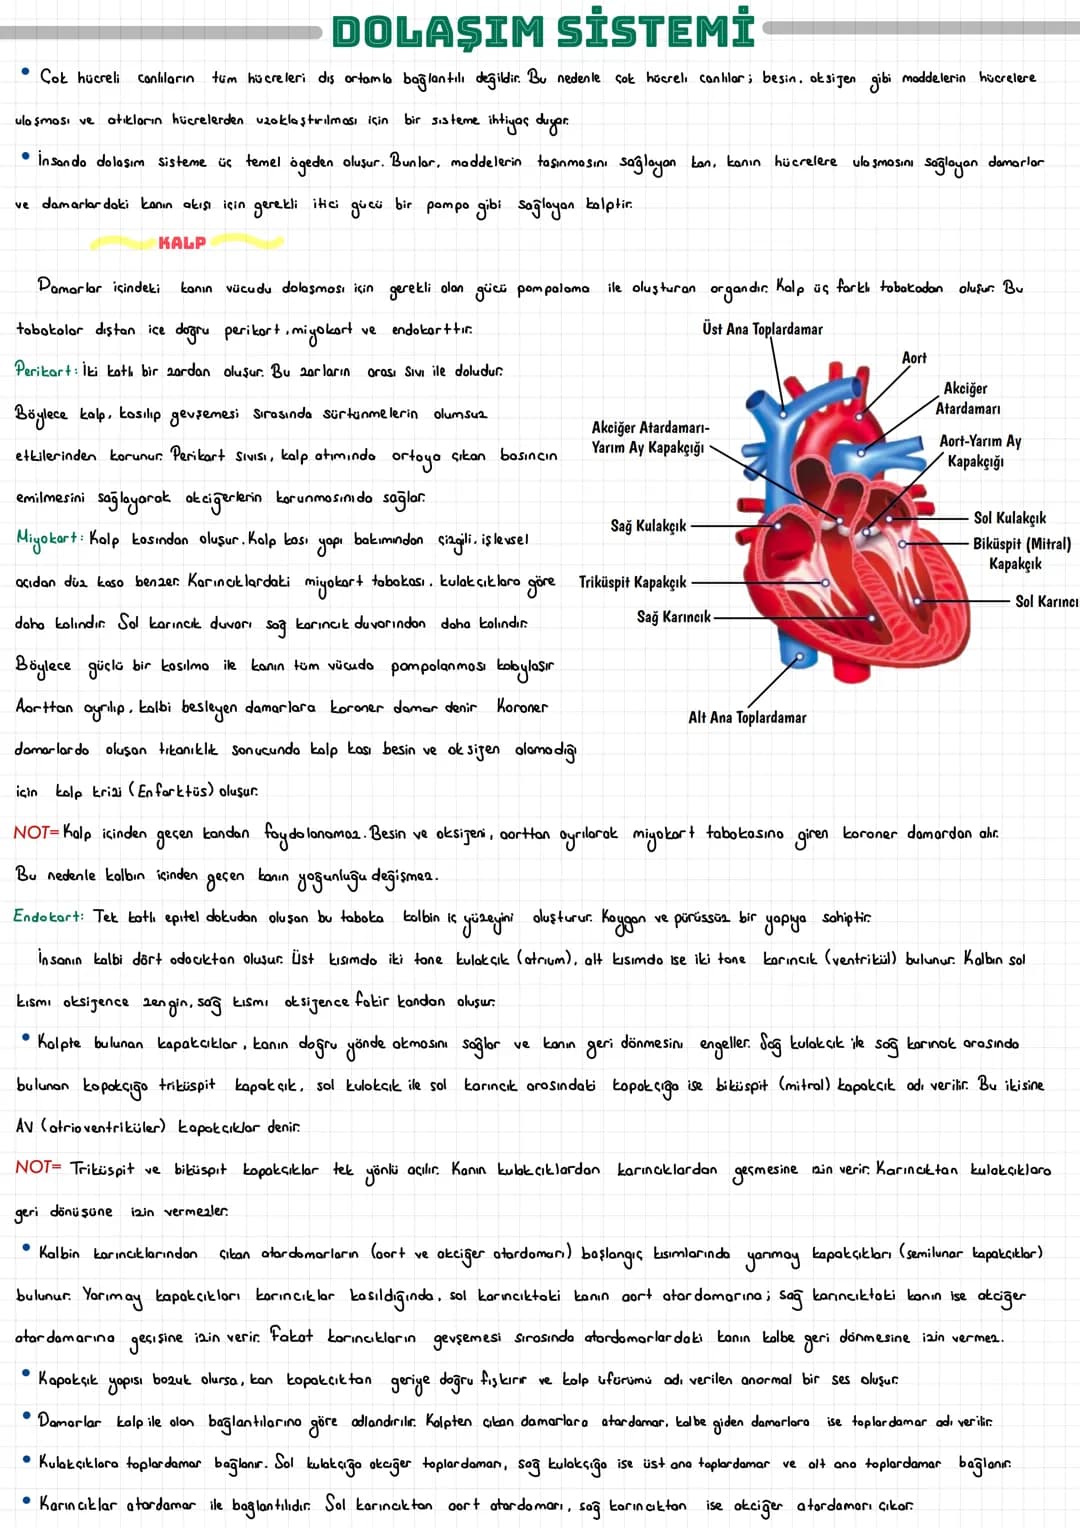 DOLAŞIM SİSTEMİ
• Çok hücreli canlıların tüm hücreleri dış ortamla bağlantılı değildir. Bu nedenle çok hücreli canlılar; besin, oksijen gibi maddelerin hücrelere
ulaşması ve atıkların hücrelerden uzaklaştırılması için bir sisteme ihtiyaç duyar.
• İnsanda dolaşım sisteme üç temel ögeden oluşur. Bunlar, maddelerin taşınmasını sağlayan kan, kanın hücrelere ulaşmasını sağlayan damarlar
ve damarlardaki kanın akışı için gerekli itici gücü bir pompa gibi sağlayan kalptir.
KALP
Damarlar içindeki kanın vücudu dolaşması için gerekli olan gücü pompalama ile oluşturan organdır. Kalp üç farklı tabakadan oluşur. Bu
tabakalar dıştan içe doğru perikart, miyokart ve endokarttır.
Perikart: İki katlı bir zardan oluşur. Bu zarların arası sıvı ile doludur.
Böylece kalp, kasılıp gevşemesi sırasında sürtünmelerin olumsuz
etkilerinden korunur. Perikart sıvısı, kalp atımında ortaya çıkan basıncın
emilmesini sağlayarak akciğerlerin korunmasını da sağlar.
Miyokart: Kalp kasından oluşur. Kalp kası yapı bakımından çizgili, işlevsel
açıdan düz kasa benzer. Karıncıklardaki miyokart tabakası, kulakcıklara göre
daha kalındır. Sol karıncık duvarı sağ karıncık duvarından daha kalındır.
Böylece güçlü bir kasılma ile kanın tüm vücuda pompalanması kolaylaşır
Aorttan ayrılıp, kalbi besleyen damarlara koroner damar denir Koroner
damarlarda oluşan tıkanıklık sonucunda kalp kası besin ve oksijen alamadığı
için kalp krizi (Enfarktüs) oluşur.
Üst Ana Toplardamar
Aort
Akciğer
Atardamarı
Akciğer Atardamarı-
Yarım Ay Kapakçığı
Aort-Yarım Ay
Kapakçığı
Sağ Kulakçık
Sol Kulakçık
Biküspit (Mitral)
Kapakçık
Triküspit Kapakçık
Sol Karıncı
Sağ Karıncık
Alt Ana Toplardamar
NOT= Kalp içinden geçen kandan faydalanamaz. Besin ve oksijeni, aorttan ayrılarak miyokart tabakasına giren koroner damardan alır.
Bu nedenle kalbin içinden geçen kanın yoğunluğu değişmez.
Endokart: Tek katlı epitel dokudan oluşan bu tabaka kalbin iç yüzeyini oluşturur. Kaygan ve pürüssüz bir yapıya sahiptir.
İnsanın kalbi dört odacıktan oluşur. Üst kısımda iki tane kulakçık (atrium), alt kısımda ise iki tane karıncık (ventrikül) bulunur. Kalbin sol
kısmı oksijence zengin, sağ kısmı oksijence fakir kandan oluşur.
• Kalpte bulunan kapakcıklar, kanın doğru yönde akmasını sağlar ve kanın geri dönmesini engeller. Sağ kulakcık ile sağ karıncık arasında
bulunan kapakçığa triküspit kapakçık, sol kulakcık ile sol karıncık arasındaki kapakçığa ise biküspit (mitral) kapakçık adı verilir. Bu ikisine
AV (atrioventriküler) kapakcıklar denir.
NOT= Triküspit ve biküspit kapakçıklar tek yönlü açılır. Kanın kulakcıklardan karıncıklardan geçmesine izin verir. Karıncıktan kulakçıklara
geri dönüşüne izin vermezler.
• Kalbin karıncıklarından çıkan atardamarların (aort ve akciğer atardamarı) başlangıç kısımlarında yarımay kapakçıkları (semilunar kapakçıklar)
bulunur. Yarımay kapakcıkları karıncıklar kasıldığında, sol karıncıktaki kanın aort atardamarına; sağ karıncıktaki kanın ise akciğer
atardamarına geçişine izin verir. Fakat karıncıkların gevşemesi sırasında atardamarlardaki kanın kalbe geri dönmesine izin vermez.
• Kapakçık yapısı bozuk olursa, kan kapakcıktan geriye doğru fışkırır ve kalp üfürümü adı verilen anormal bir ses oluşur.
• Damarlar kalp ile olan bağlantılarına göre adlandırılır. Kalpten çıkan damarlara atardamar, kalbe giden damarlara ise toplardamar adı verilir.
• Kulakçıklara toplardamar bağlanır. Sol kulakçığa akciğer toplardamarı, sağ kulakçığa ise üst ana toplardamar ve alt ana toplardamar bağlanır.
• Karıncıklar atardamar ile bağlantılıdır. Sol karıncıktan aort atardamarı, sağ karıncıktan ise akciğer atardamarı çıkar.